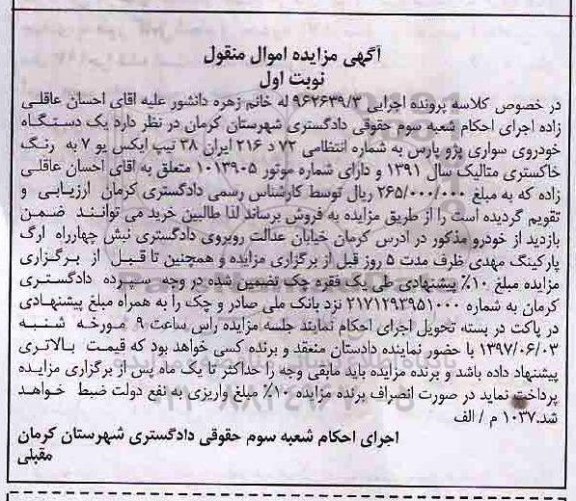 آگهی مزایده اموال منقول
نوبت اول
در خصوص کلاسه پرونده اجرایی ۹۶۲۶۳۹/۳ له خانم زهره دانشور علیه اقای احسان عاقلی
زاده اجرای احکام شعبه سوم حقوقی دادگستری شهرستان کرمان در نظر دارد یک دستگاه
خودروی سواری پژو پارس به شماره انتظامی ۷۲ د ۲۱۶ ایران ۳۸ تیپ ایکس یو ۷ به رنگ
خاکستری متالیک سال ۱۳۹۱ و دارای شماره موتور ۱۰۱۳۹۰۵ متعلق به اقای احسان عاقلی
زاده که به مبلغ ۲۶۵/۰۰۰/۰۰۰ ریال توسط کارشناس رسمی دادگستری کرمان ارزیابی و
تقویم گردیده است را از طریق مزایده به فروش برساند لذا طالبین خرید می توانند ضمن
بازدید از خودرو مذکور در ادرس کرمان خیابان عدالت روبروی دادگستری نبش چهارراه ارگ
پارکینگ مهدی ظرف مدت ۵ روز قبل از برگزاری مزایده و همچنین تا قبل از برگزاری
مزایده مبلغ ۱۰٪ پیشنهادی طی یک فقره چک تضمین شده در وجه سپرده دادگستری
کرمان به شماره ۲۱۷۱۲۹۲۹۵۱۰۰۰ نزد بانک ملی صادر و چک را به همراه مبلغ پیشنهادی
در پاکت در بسته تحویل اجرای احکام نمایند جلسه مزایده راس ساعت ۹ مورخه شنبه
۱۳۹۷/۰۶/۰۳ با حضور نماینده دادستان منعقد و برنده کسی خواهد بود که قیمت بالاتری
پیشنهاد داده باشد و برنده مزایده باید مابقی وجه را حداکثر تا یک ماه پس از برگزاری مزایده
پرداخت نماید در صورت انصراف برنده مزایده ۱۰٪ مبلغ واریزی به نفع دولت ضبط خواهد
شد.۱۰۳۷ م / الف
اجرای احکام شعبه سوم حقوقی دادگستری شهرستان کرمان
مقبلی